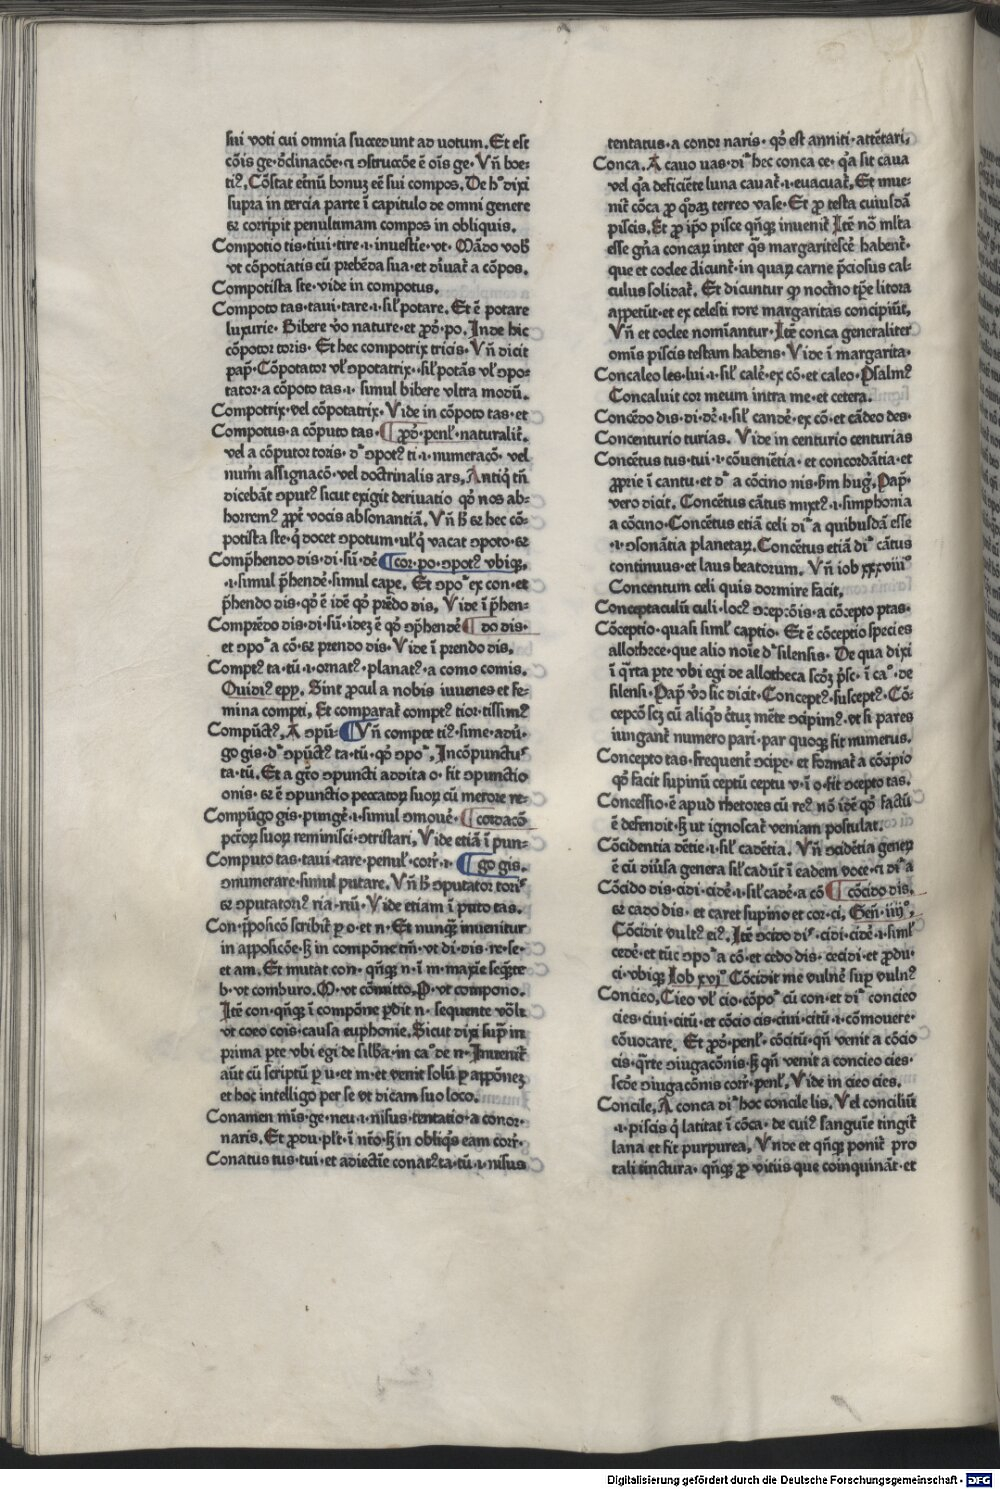 sui voti cui omnia succedunt ad uotum. Et est
cōis ge· ōdinacōe· ꝛ ɔstruccōe ē oīs ge· Vñ boe-
tiꝰ. Cōstat etnū bonuꝫ eē sui compos. De hᵒ dixi
supra in tercia parte ī capitulo de omni genere
ꝛ corripit penultimam compos in obliquis.
Compotio tis·tiui·tire·i·inuestire·vt· Mādo vob̄
vt cōpotiatis eū prebēda sua·et diuat᷑ a cōpos.
Compotista ste·vide in compotus.
Compoto tas·taui·tare·i·sil̄ potare. Et ē potare
luxurie· Bibere v̄o nature·et ꝓdᵒ·po· Inde hic
cōpotor toris· Et hec compotrix tricis· Vñ dicit
pap̄· Cōpotator vl̄ ɔpotatrix··sil̄ potās vl̄ ɔpo-
tator·a cōpoto tas·i· simul bibere vltra modū.
Compotrix·vel cōpotatrix· Vide in cōpoto tas·et
Compotus·a cōputo tas· ¶ ꝓdᵒ·penl̄·naturalit᷑.
vel a cōputor toris· dᷣ ɔpotꝰ ti·i·numeracō· vel
num̄i assignacō·vel doctrinalis ars. Antiqͥ tn̄
dicebāt ɔputꝰ sicut exigit deriuatio qᵒ nos ab-
horremꝰ ꝓpt᷑ vocis absonantiā. Vñ b̄ ꝛ hec cō-
potista ste·qͥ docet ɔpotum·ul̄ qͥ vacat ɔpoto·ꝛ
Comp̄hendo dis·di·sū·dē ¶ cor·po·ɔpotꝰ vbiqꝫ.
·i·simul p̄hendē·simul cape. Et ɔpoᷓ ex con·et
p̄hendo dis·qᵒ ē idē qᵒ prēdo dis. Vide ī p̄hen-
Comprēdo dis·di·sū·ideꝫ ē qᵒ ɔp̄hendē ¶ do dis·
et ɔpoᷓ a cō·ꝛ prendo dis· Vide ī prendo dis.
Comptꝰ ta·tū·i·ornatꝰ·planatꝰ·a como comis.
Ouidiꝰ epp. Sint ꝓcul a nobis iuuenes et fe-
mina compti. Et comparat᷑ comptꝰ tior·tissimꝰ
Compūctꝰ. A ɔpū- ¶ Vñ compte tiꝰ·sime·adu·
go gis·dᷣ ɔpūctꝰ ta·tū·qᵒ ɔpoᷓ. Incōpunctuꝰ
ta·tū. Et a gt̄o ɔpuncti addita o·fit ɔpunctio
onis·ꝛ ē ɔpunctio peccatoꝝ suoꝝ cū merore re-
Compūgo gis·pungē·i·simul ɔmouē· ¶ cordacō
pct̄oꝝ suoꝝ reminisci·ɔtristari. Vide etiā ī pun-
Computo tas·taui·tare·penul̄·corr̄·i· ¶ go gis.
ɔnumerare·simul putare. Vñ b̄ ɔputator toriˢ
ꝛ ɔputatoriꝰ ria·riū· Vide etiam ī puto tas.
Con·ꝓposicō scribit᷑ ꝑ o·et n· Et nunqꝫ inuenitur
in apposicōe·sꝫ in compōne tm̄·vt di·dis·re·se·
et am. Et mutat con·qn̄qꝫ n·ī m·maxīe seqn̄te
b·vt comburo. M·vt cōmitto. P·vt compono.
Itē con·qn̄qꝫ ī compōne ꝑdit n·sequente vōli
vt coeo cois·causa euphonie. Sicut dixi sup̄ in
prima pte vbi egi de sill̄ba·in caᵒ de n· Inuenit᷑
aūt cū scriptū ꝑ u·et m·et venit solū ꝑ appōneꝫ
et hoc intelligo per se vt dicam suo loco.
Conamen mīs·ge·neu·i·nisus·tentatio·a conor·
naris. Et ꝓdu·pl̄t·ī nt̄o·sꝫ in obliqͥs eam corr̄·
Conatus tus·tui·et adiectīe conatꝰ ta·tū·i·nisus
tentatus·a conor naris·qᵒ est anniti·attētari.
Conca. A cauo uas·diᷓ hec conca ce·qͣa sit caua
vel qͣa deficiēte luna cauat᷑·i·euacuat᷑. Et inue-
nit᷑ cōca ꝓ qᵒdaꝫ terreo vase· Et ꝓ testa cuiusdā
piscis. Et ꝓ ip̄o pisce qn̄qꝫ inuenit᷑ Itē nō ml̄ta
esse gn̄a concaꝝ inter qͣs margaritescē habent᷑·
que et coclee dicunt᷑·in quaꝝ carne p̄ciosus cal-
culus solidat᷑. Et dicuntur qꝫ nocͭno tp̄e litora
appetūt·et ex celesti rore margaritas concipiūt.
Vñ et coclee nominantur· Itē conca generaliter
omīs piscis testam habens· Vide ī margarita·
Concaleo les·lui·i·sil̄ calē·ex cō·et caleo· Psalmꝰ
Concaluit cor meum intra me·et cetera.
Concēdo dis·di·dē·i·sil̄ candē·ex cō·et cādeo des·
Concenturio turias. Vide in centurio centurias
Concētus tus·tui·i·cōuenientia·et concordātia·et
ꝓprie ī cantu·et dᷣ a cōcino nis·b̄m hug̉. Pap̄·
vero dicit. Concētus cātus mixtꝰ·i·simphonia
a cōcino· Concētus etiā celi diᷓ a quibusdā esse
·i·ɔsonātia planetaꝝ. Concētus etiā diᷓ cātus
continuus·et laus beatorum. Vñ iob xxxviiiᵒ
Concentum celi quis dormire facit.
Conceptaculū culi·locꝰ ɔcepcōis·a cōcepto ptas·
Cōceptio·quasi siml̄ captio· Et ē cōceptio species
allothece·que alio noīe dᷣ silensis· De qua dixi
ī qͣrta pte vbi egi de allotheca scōꝫ p̄sc·ī caᵒ·de
silensi· Pap̄ v̄o sic dicit· Conceptꝰ·susceptꝰ· Cō-
cepcō scꝫ cū aliqͥd c̄tuꝫ mēte ɔcipimꝰ·vt si pares
iungant᷑ numero pari·par quoqꝫ fit numerus.
Concepto tas·frequent᷑ ɔcipe·et format᷑ a cōcipio
qᵒ facit supinū ceptū ceptu v·ī o·fit ɔcepto tas.
Concessio·ē apud rhetores cū reꝰ nō idē qᵒ factū
ē defendit·sꝫ ut ignoscat᷑ veniam postulat.
Cōcidentia dētie·i·sil̄ cadētia. Vñ ɔcidētia geneꝝ
ē cū diūsa genera sil̄ cadūt ī eadem voce·ꝛ diᷓ a
Cōcido dis·cidi·cidē·i·sil̄ cadē·a cō ¶ cōcido dis.
ꝛ cado dis·et caret supino et cor·ci. Geñ·iiiiᵒ.
Cōcidit vultꝰ eiꝰ. Itē ɔcido diˢ·cidi·cidē·i·siml̄
cedē·et tūc ɔpoᷓ a cō·et cedo dis·cecidi·et ꝓdu·
ci·vbiqꝫ Iob xviᵒ Cōcidit me vulnē sup̄ vulnꝰ
Concieo. Cieo vl̄ cio·cōpoᷓ cū con·et diᷓ concieo
cies·ciui·citū·et cōcio cis·ciui·citū·i·cōmouere·
cōuocare. Et ꝓdᵒ·penl̄·cōcitū·qn̄ venit a cōcio
cis·qͣrte ɔiugacōnis·sꝫ qn̄ venit a concieo cies·
scd̄e ɔiugacōnis corr̄·penl̄. Vide in cieo cies.
Concile. A conca diᷓ hoc concile lis. Vel conciliū
·i·piscis qͥ latitat ī cōca·de cuiꝰ sanguīe tingit᷑
lana et fit purpurea. Vnde et qn̄qꝫ ponit᷑ pro
tali tinctura·qn̄qꝫ ꝓ vitiis que coinquināt·et
Digitalisierung gefördert durch die Deutsche Forschungsgemeinschaft - DFG